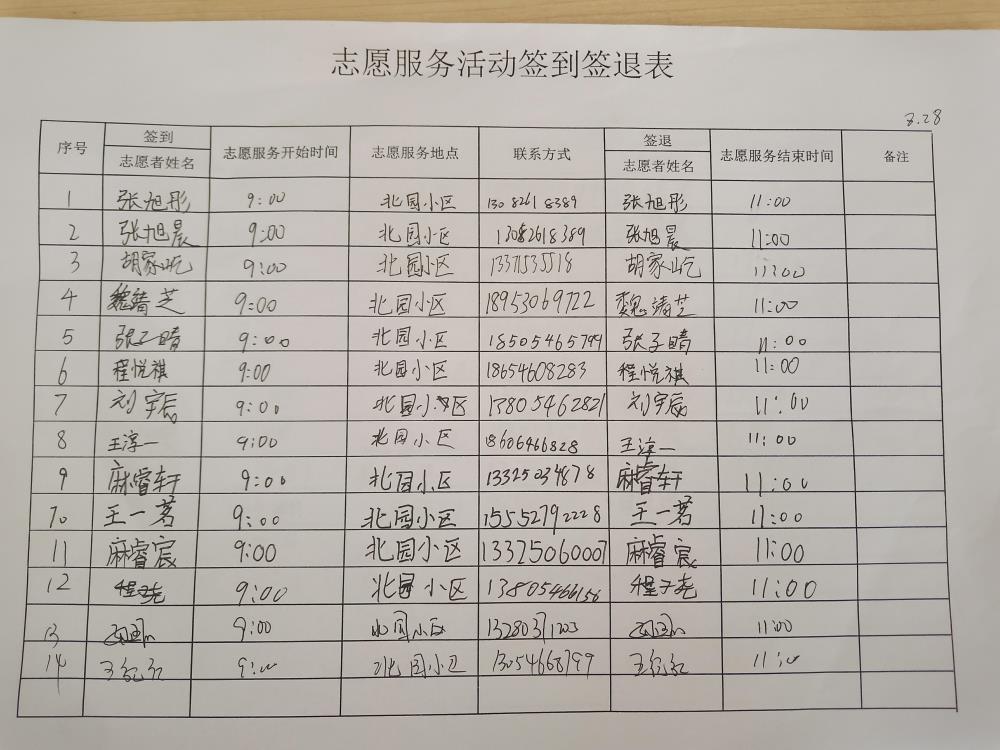 志愿服务活动签到签退表
3.28
序号 签到 志愿者姓名 志愿服务开始时间 志愿服务地点 联系方式 签退 志愿者姓名 志愿服务结束时间 备注
1 张旭彤 9:00 北园小区 13082618389 张旭彤 11:00
2 张旭晨 9:00 北园小区 13082618389 张旭晨 11:00
3 胡家屹 9:00 北园小区 13371535518 胡家屹 11:00
4 魏靖芝 9:00 北园小区 18953069722 魏靖芝 11:00
5 张子晴 9:00 北园小区 18505465799 张子晴 11:00
6 程悦祺 9:00 北园小区 18654608283 程悦祺 11:00
7 刘宇辰 9:00 北园小区 13805462821 刘宇辰 11:00
8 王淳一 9:00 北园小区 18606466828 王淳一 11:00
9 麻睿轩 9:00 北园小区 13325034878 麻睿轩 11:00
10 王一茗 9:00 北园小区 15552792228 王一茗 11:00
11 麻睿宸 9:00 北园小区 13325060007 麻睿宸 11:00
12 程子尧 9:00 北园小区 13805466156 程子尧 11:00
13 9:00 北园小区 11:00
14 9:00 北园小区 13054668799 11:00